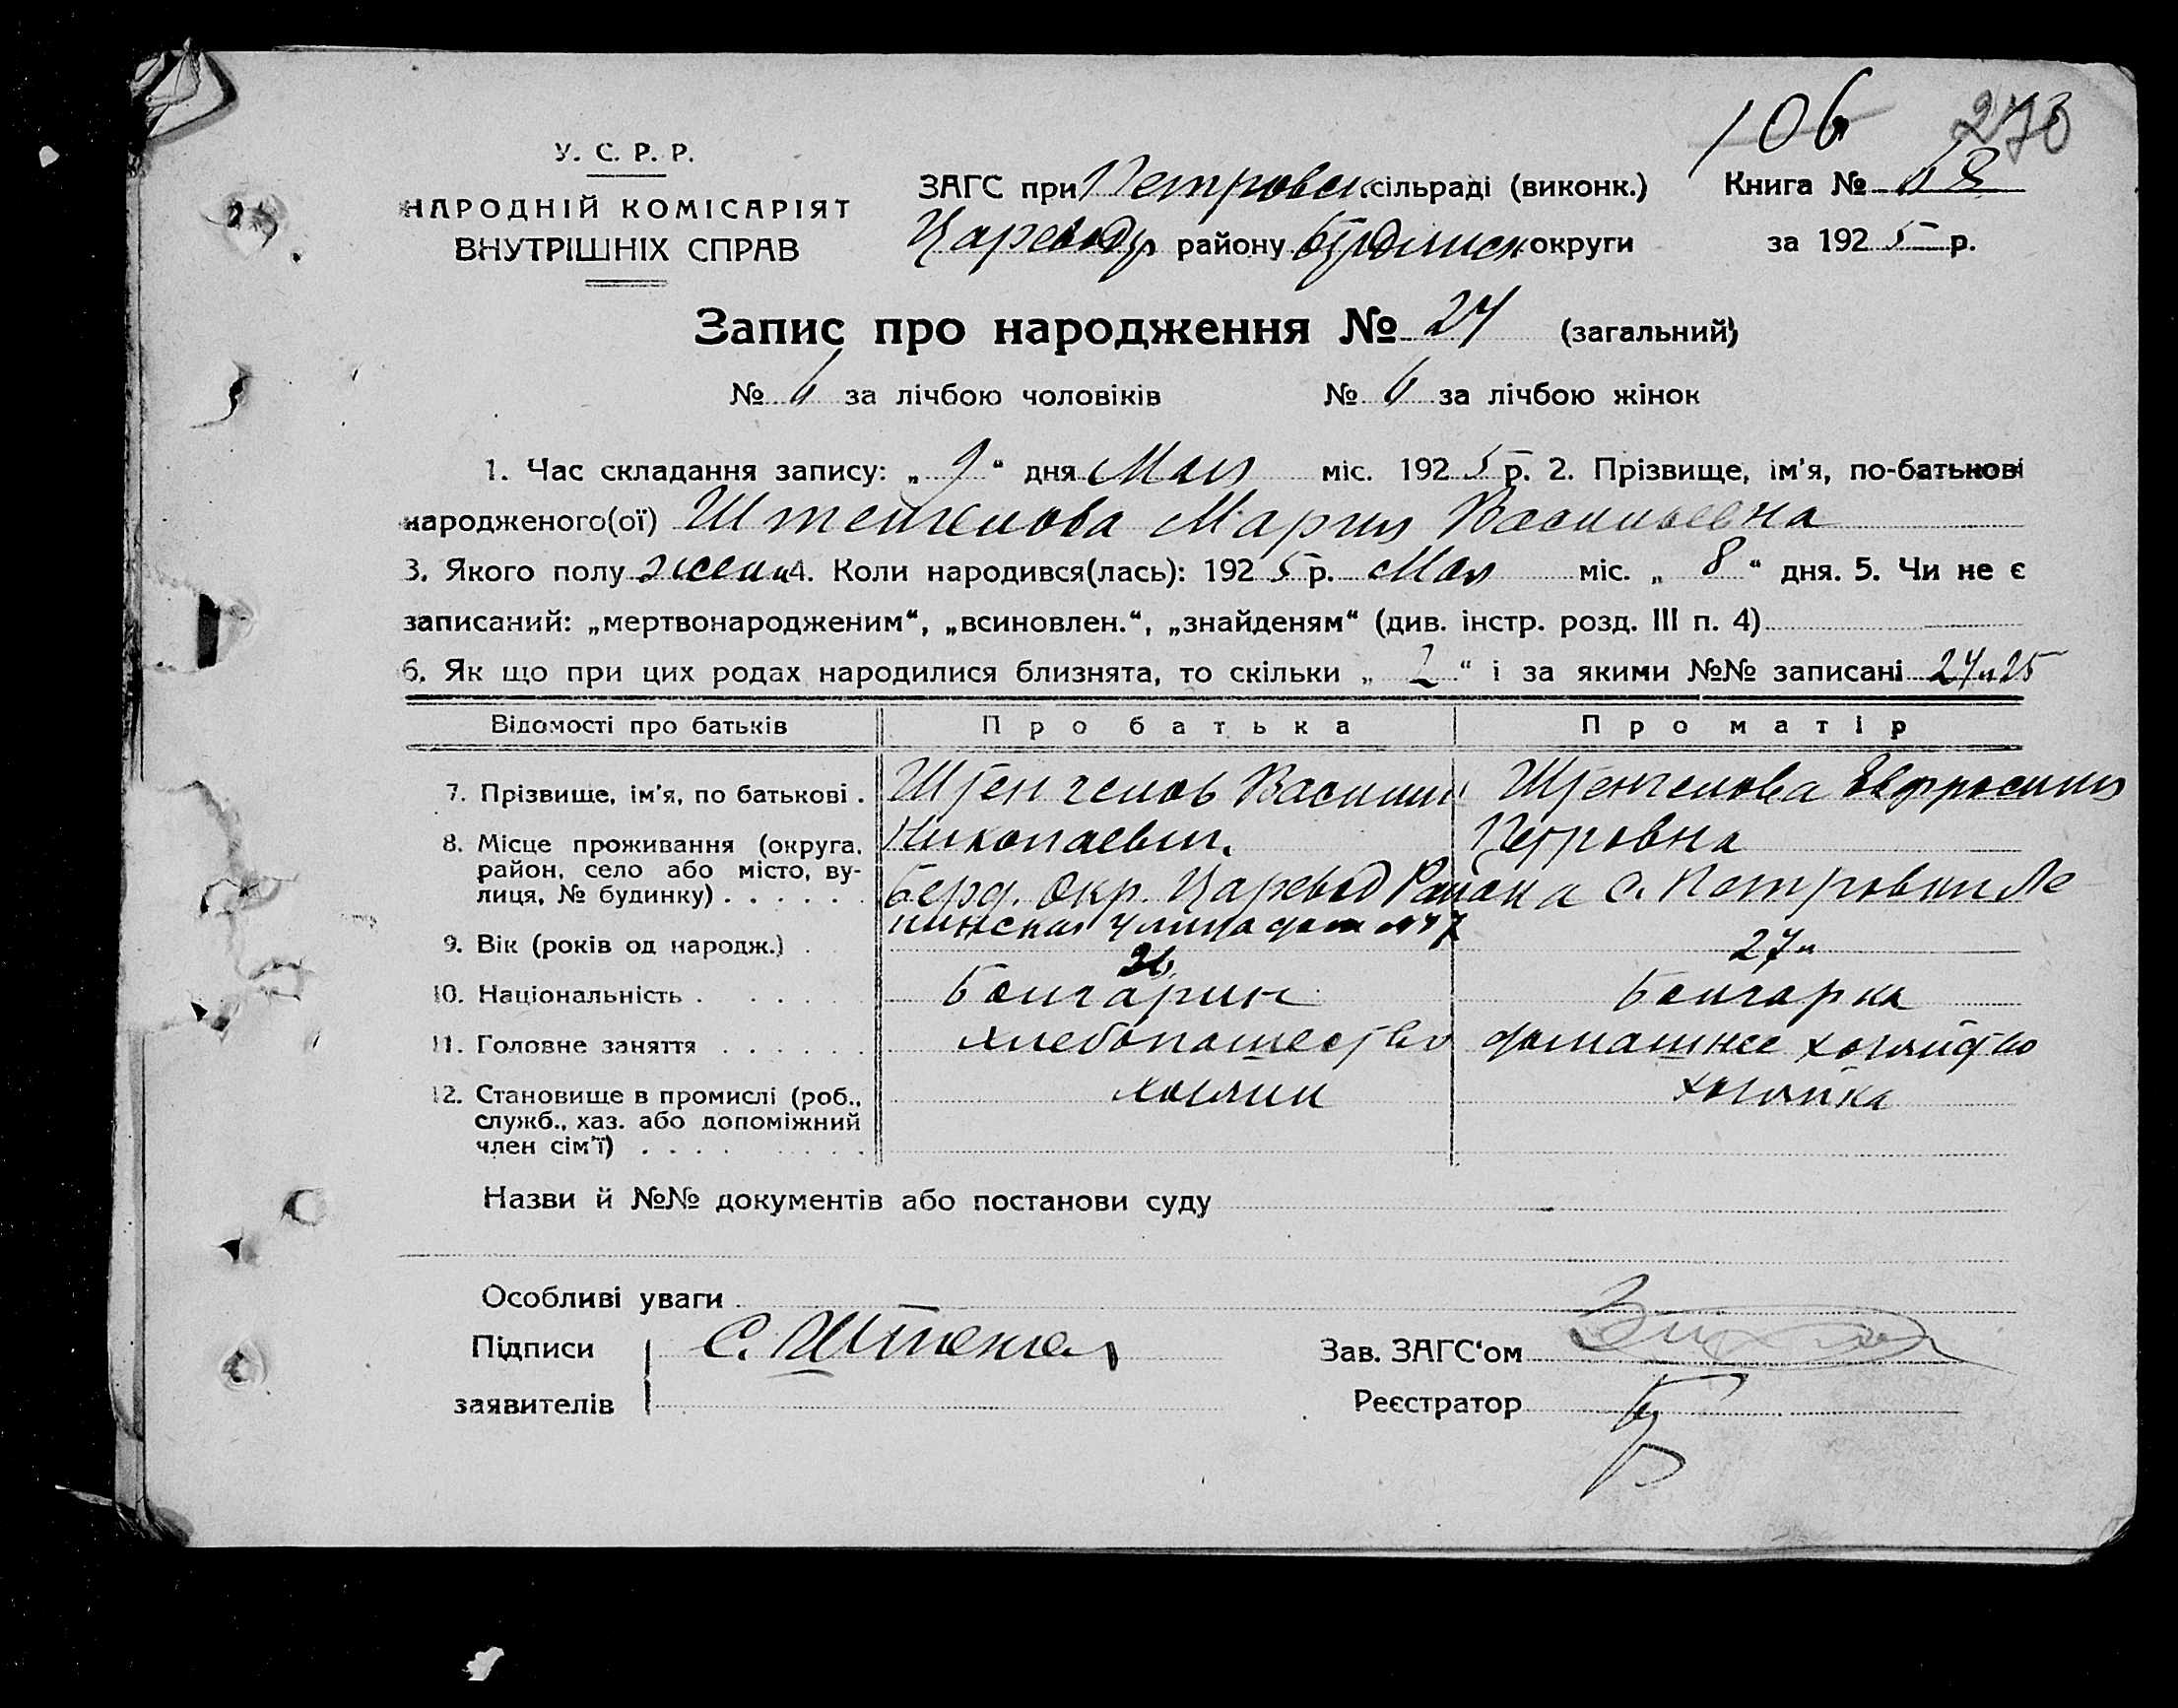 106 273
У. С. Р. Р.
НАРОДНІЙ КОМІСАРІЯТ
ВНУТРІШНІХ СПРАВ
ЗАГС при Петровск сільраді (виконк.) Книга №
Царевод району округи за 192 5 р.
Запис про народження № 24 (загальний)
№ за лічбою чоловіків № за лічбою жінок
1. Час складання запису: „ 9 “ дня Мая міс. 192 5 р. 2. Прізвище, ім'я, по-батькові
народженого(ої) Штенгелова Мария Васильевна
3. Якого полу женск 4. Коли народився(лась): 192 5 р. Мая міс. „ 8 “ дня. 5. Чи не є
записаний: „мертвонародженим“, „всиновлен.“, „знайденям“ (див. інстр. розд. III п. 4)
6. Як що при цих родах народилися близнята, то скільки „ 2 “ і за якими №№ записані 24 и 25
Відомості про батьків Про батька Про матір
7. Прізвище, ім'я, по батькові . Штенгелов Василий Штенгелова Евфросиния
Николаевич. Петровна
8. Місце проживання (округа, район, село або місто, вулиця, № будинку) . . . . . . Берд. Окр. Царевод Района с. Петровки Ле
нинская улица дом № 47
9. Вік (років од народж.) . 27
10. Національність . . . . . Болгарин Болгарка
11. Головне заняття . . . . . . хлебопашество домашнее хозяйство
12. Становище в промислі (роб., служб., хаз. або допоміжний член сім'ї) . . . . . . . . . хозяин хозяйка
Назви й №№ документів або постанови суду
Особливі уваги
Підписи С. Штенгел Зав. ЗАГС‘ом
заявителів Реєстратор